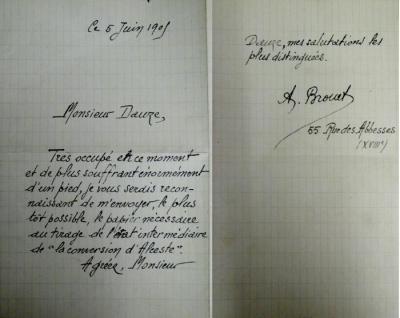 Ce 5 Juin 1905
Monsieur Dauze,
Très occupé en ce moment
et de plus souffrant enormément
d'un pied, je vous serais recon-
naissant de m'envoyer, le plus
tôt possible, le papier nécessaire
au tirage de l'état intermédiaire
de "la conversion d'Alceste".
Agréez, Monsieur
Dauze, mes salutations les
plus distinguées.
A. Brouet
55 Rue des Abbesses
(XVIIIe)